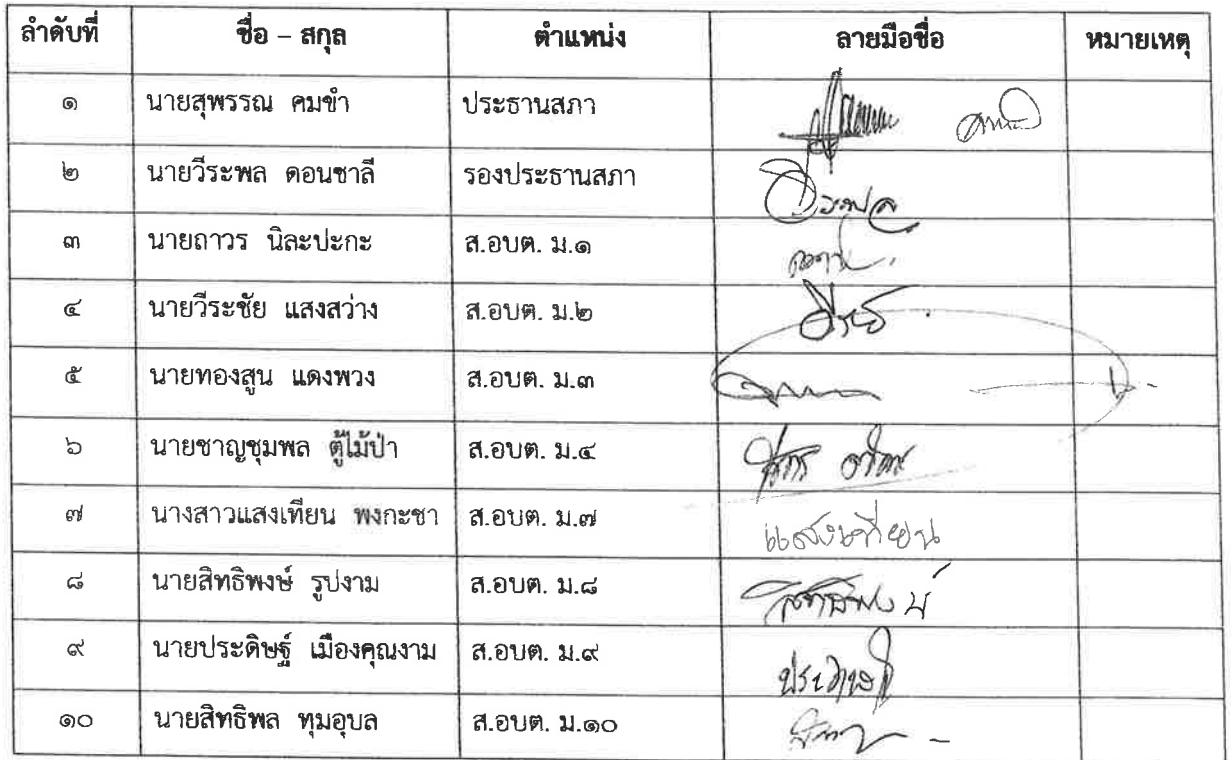 ลำดับที่ ชื่อ – สกุล ตำแหน่ง ลายมือชื่อ หมายเหตุ
๑ นายสุพรรณ คมขำ ประธานสภา
๒ นายวีระพล ดอนชาลี รองประธานสภา
๓ นายถาวร นิละปะกะ ส.อบต. ม.๑
๔ นายวีระชัย แสงสว่าง ส.อบต. ม.๒
๕ นายทองสูน แดงพวง ส.อบต. ม.๓
๖ นายชาญชุมพล ตู้ไม้ป่า ส.อบต. ม.๔
๗ นางสาวแสงเทียน พงกะชา ส.อบต. ม.๗ แสงเทียน
๘ นายสิทธิพงษ์ รูปงาม ส.อบต. ม.๘
๙ นายประดิษฐ์ เมืองคุณงาม ส.อบต. ม.๙
๑๐ นายสิทธิพล ทุมอุบล ส.อบต. ม.๑๐